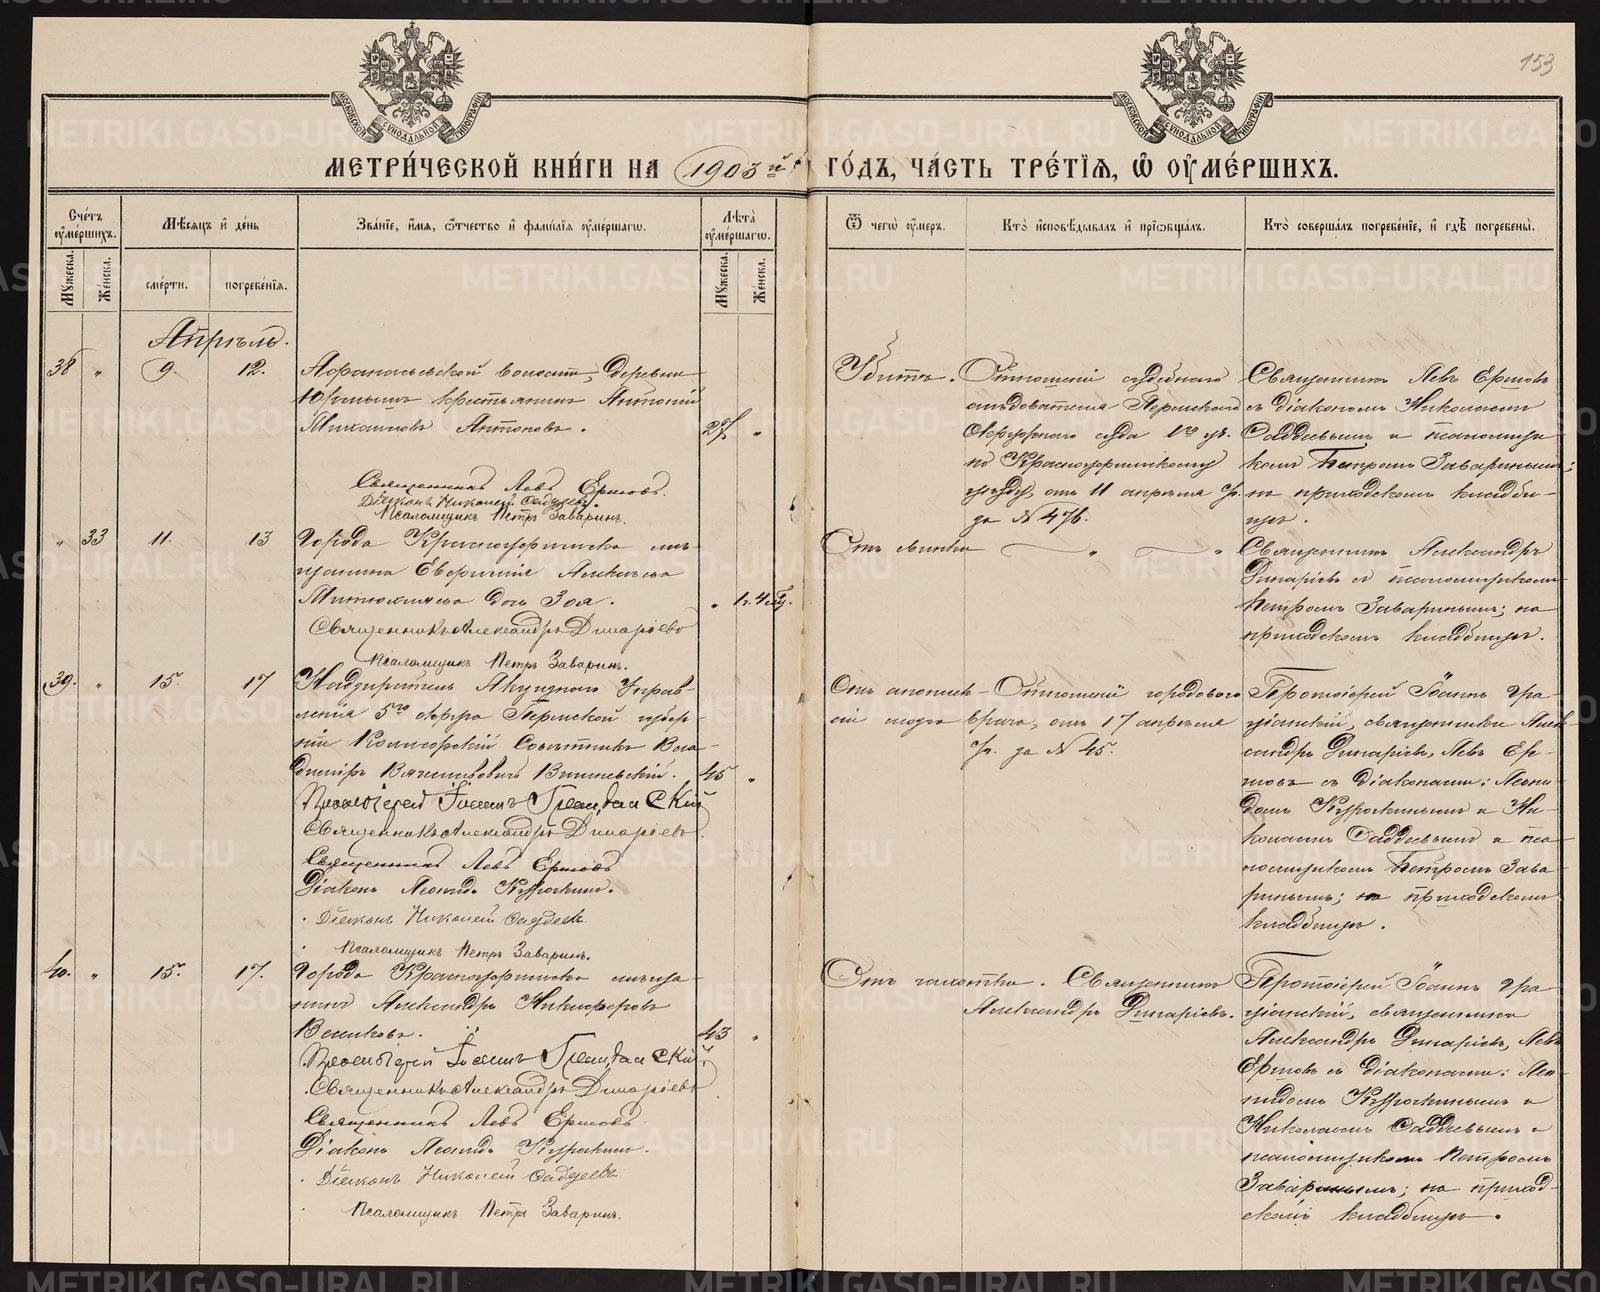 153
МЕТРИ́ЧЕСКОЙ КНИ́ГИ НА 1903 й
ГО́ДЪ, ЧА́СТЬ ТРЕ́ТІѦ, Ѡ҆ ОУ҆МЕ́РШИХЪ.
Сче́тъ оу҆ме́ршихъ.
Мꙋ́жеска.
Же́нска.
Мѣ́сяцъ и҆ де́нь
сме́рти.
погребе́нїѧ.
Зва́нїе, и҆́мѧ, ѻ҆́тчество и҆ фамѝлїѧ оу҆ме́ршагѡ.
Лѣ́та оу҆ме́ршагѡ.
Мꙋ́жеска.
Же́нска.
Ѿ чегѡ̀ оу҆́меръ.
Кто̀ и҆сповѣ́дывалъ и҆ прїѡбща́лъ.
Кто̀ соверша́лъ погребе́нїе, и҆ гдѣ̀ погребены̀.
Апрѣль.
38 " 9. 12.
Афанасьевской волости, деревни
Юрмышъ крестьянинъ Антоній
Михаиловъ Антоновъ. 27 "
Священникъ Левъ Ершовъ.
Діаконъ Николай Саддеевъ.
Псаломщикъ Петръ Заваринъ.
Убитъ.
Отношеніе судебнаго
слѣдователя Пермскаго
Окружнаго суда 1го уч.
по Красноуфимскому
уѣзду, отъ 11 апрѣля с/г.
за № 476.
Священникъ Левъ Ершовъ
съ діакономъ Николаемъ
Саддеевымъ и псаломщи-
комъ Петромъ Заваринымъ;
на приходскомъ кладби-
щѣ.
" 33 11. 13
Города Красноуфимска мѣ-
щанина Евфимія Алексѣева
дочь Зоя. " 1 г. 4 мѣс.
Священникъ Александръ Динаріевъ
Псаломщикъ Петръ Заваринъ.
Отъ свинки " "
Священникъ Александръ
Динаріевъ съ псаломщикомъ
Петромъ Заваринымъ; на
приходскомъ кладбищѣ.
39. " 15. 17
Надзиратель Акцизнаго Управ-
ленія 5го округа Пермской губер-
ніи Коллежскій Совѣтникъ Вла-
диміръ Вячеславовичъ Вишневскій. 45 "
Протоіерей Іоаннъ Граціанскій
Священникъ Александръ Динаріевъ.
Священникъ Левъ Ершовъ
Діаконъ Леонидъ Курочкинъ.
Діаконъ Николай Саддеевъ.
Псаломщикъ Петръ Заваринъ.
Отъ апоплек-
сіи мозга
Отношеніе городового
врача, отъ 17 апрѣля
с/г. за № 45.
Протоіерей Іоаннъ Гра-
ціанскій, священники Алек-
сандръ Динаріевъ, Левъ Ер-
шовъ съ діаконами: Леони-
домъ Курочкинымъ и Ни-
колаемъ Саддеевымъ и пса-
ломщикомъ Петромъ Зава-
ринымъ; на приходскомъ
кладбищѣ.
40. " 15. 17.
Города Красноуфимска мѣща-
нинъ Александръ Никифоровъ
Великовъ. 43 "
Протоіерей Іоаннъ Граціанскій
Священникъ Александръ Динаріевъ
Священникъ Левъ Ершовъ
Діаконъ Леонидъ Курочкинъ.
Діаконъ Николай Саддеевъ
Псаломщикъ Петръ Заваринъ.
Отъ чахотки.
Священникъ
Александръ Динаріевъ.
Протоіерей Іоаннъ Гра-
ціанскій, священники
Александръ Динаріевъ, Левъ
Ершовъ съ діаконами: Лео-
нидомъ Курочкинымъ и
Николаемъ Саддеевымъ и
псаломщикомъ Петромъ
Заваринымъ; на приход-
скомъ кладбищѣ.
METRIKI.GASO-URAL.RU